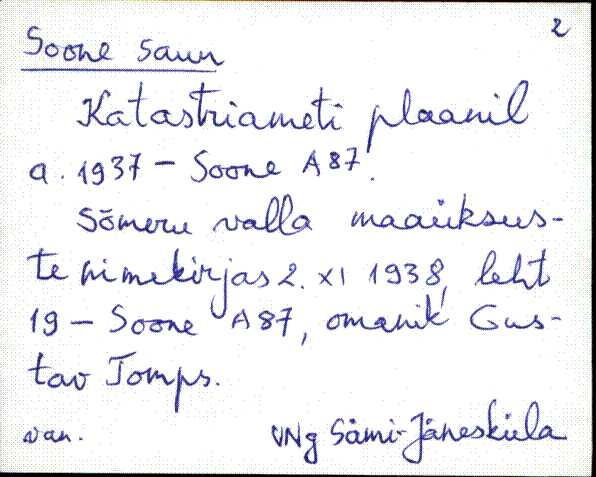 2
Soone saun
Katastriameti plaanil
a. 1937 - Soone A87.
Sõmeru valla maaüksus-
te nimekirjas 2. XI 1938, leht
19 - Soone A87, omanik Gus-
tav Tomps.
van. VNg Sämi-Jäneskĩla